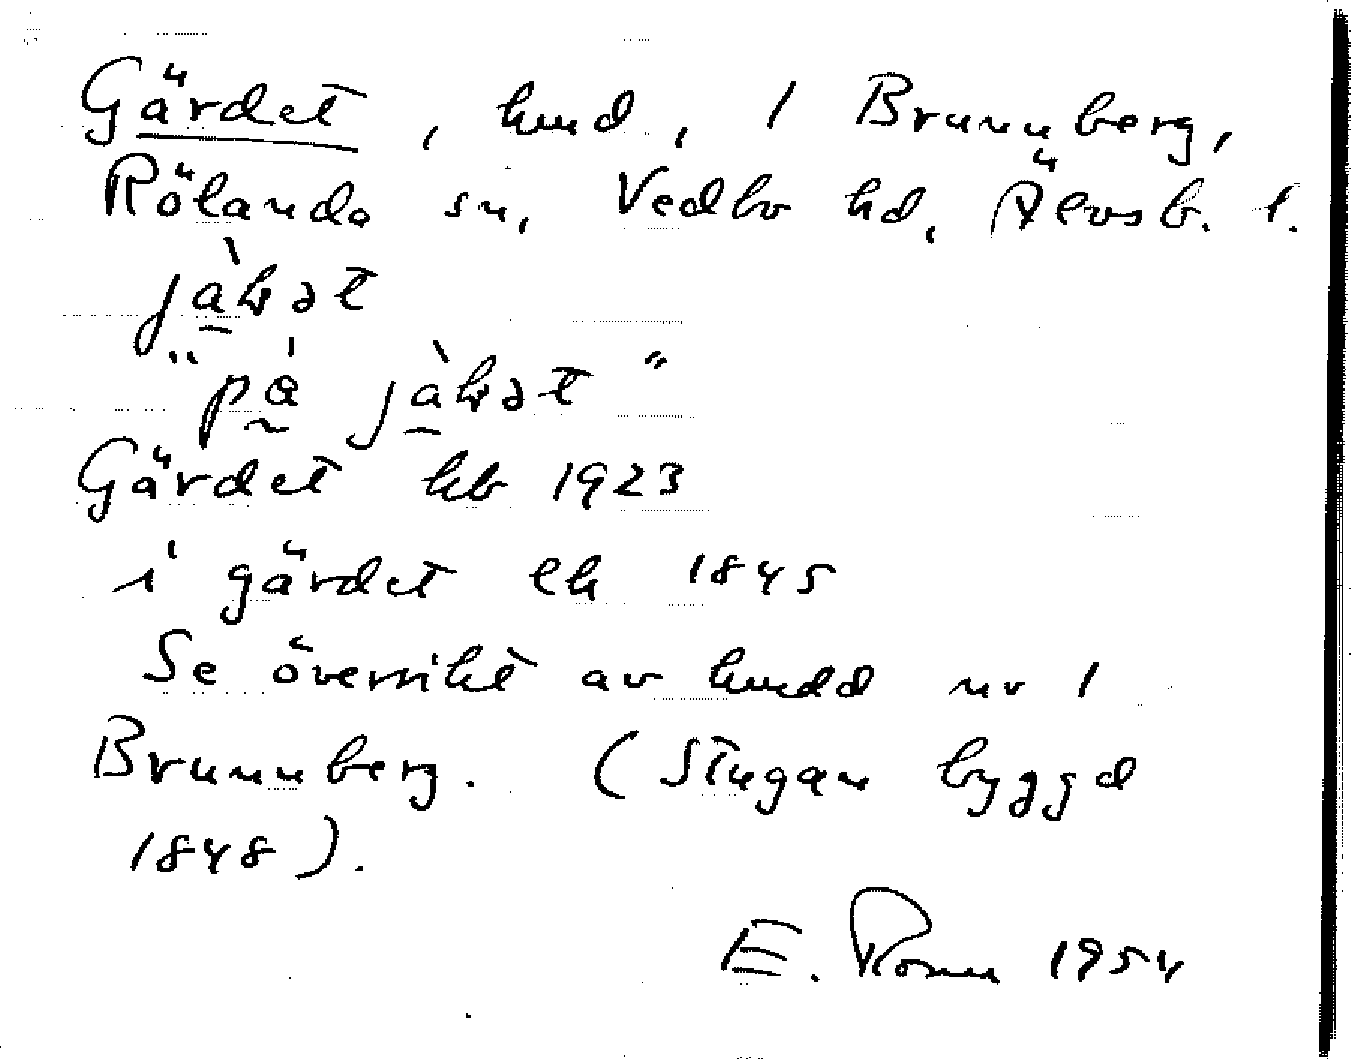 Gärdet, hmd, 1 Brunnberg,
Rölanda sn, Vedbo hd, Älvsb. l.
"på
Gärdet kb 1923
i gärdet lk 1845
Se översikt av hmdd nr 1
Brunnberg. (Stugan byggd
1848).
E. 1954